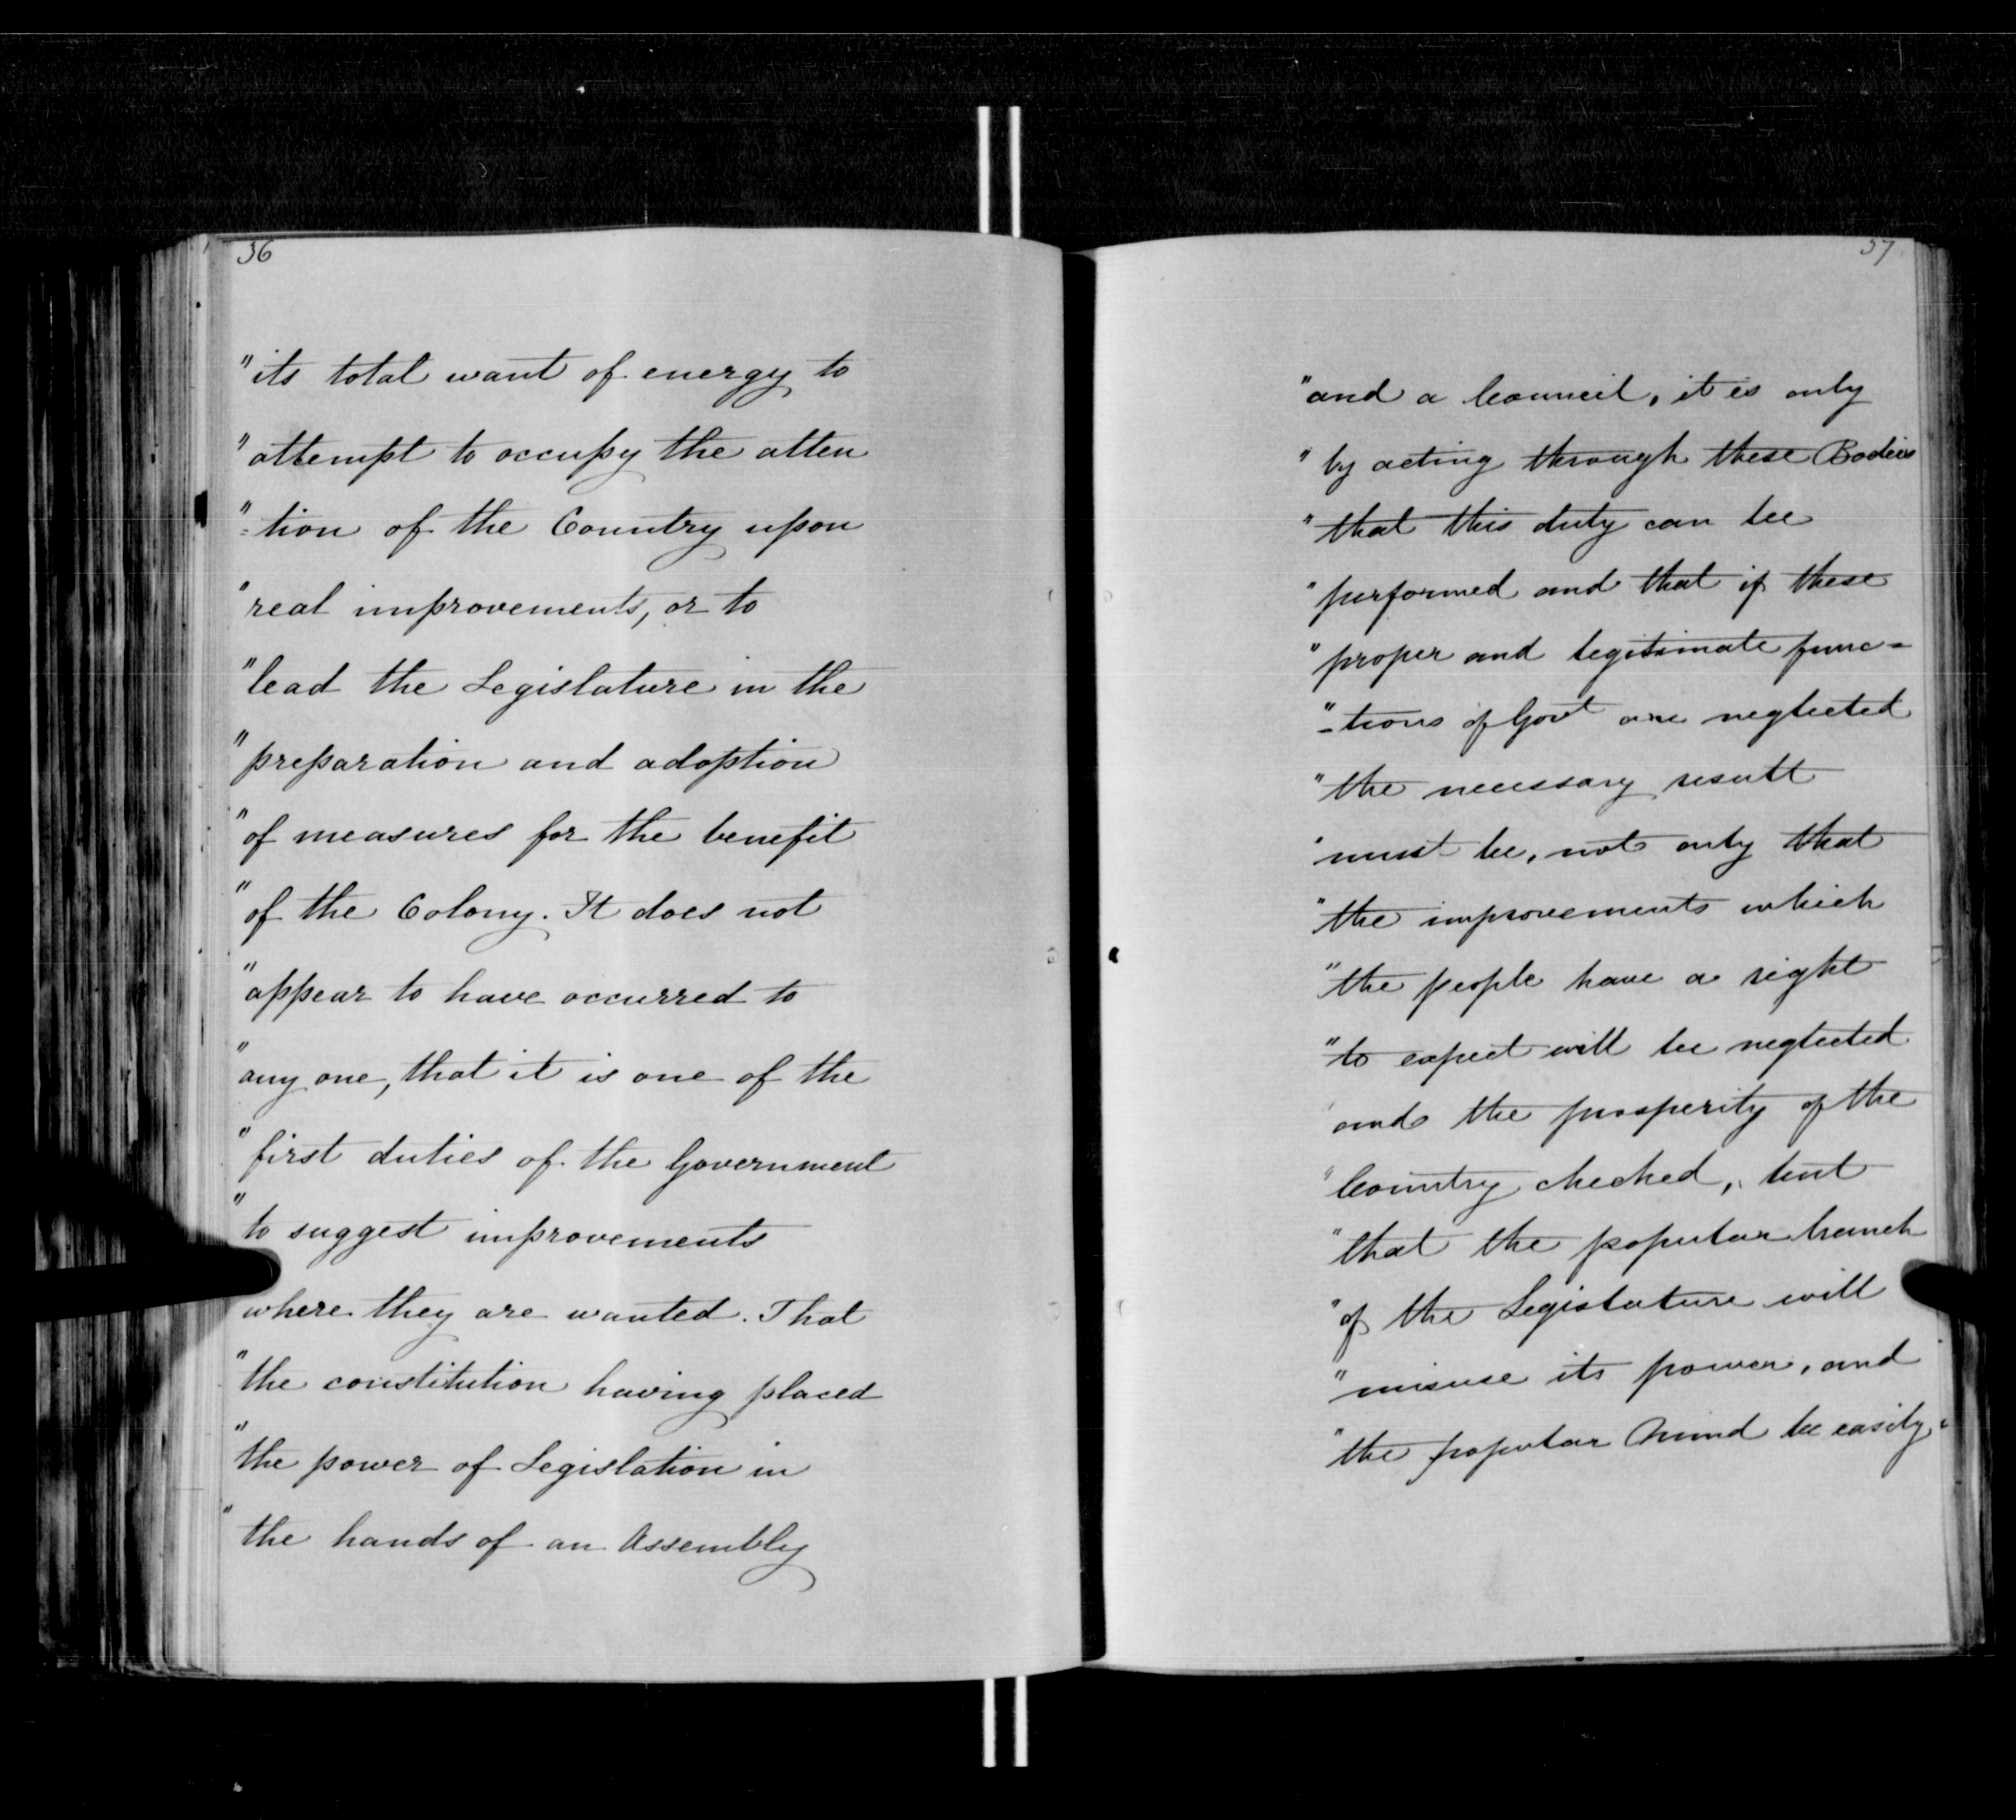 36
"its total want of energy to
"attempt to occupy the atten
"=tion of the Country upon
"real improvements, or to
"lead the Legislature in the
"preparation and adoption
"of measures for the benefit
"of the Colony. It does not
"appear to have occurred to
"any one, that it is one of the
"first duties of the Government
"to suggest improvements
where they are wanted. That
"the constitution having placed
"the power of Legislation in
"the hands of an Assembly
37
"and a Council, it is only
"by acting through these Bodies
"that this duty can be
"performed and that if these
"proper and legitimate func=
"=tions of Govt are neglected
"the necessary result
"must be, not only that
"the improvements which
"the people have a right
"to expect will be neglected
"and the prosperity of the
"Country checked, but
"that the popular branch
"of the Legislature will
"misuse its power, and
"the popular Mind be easily